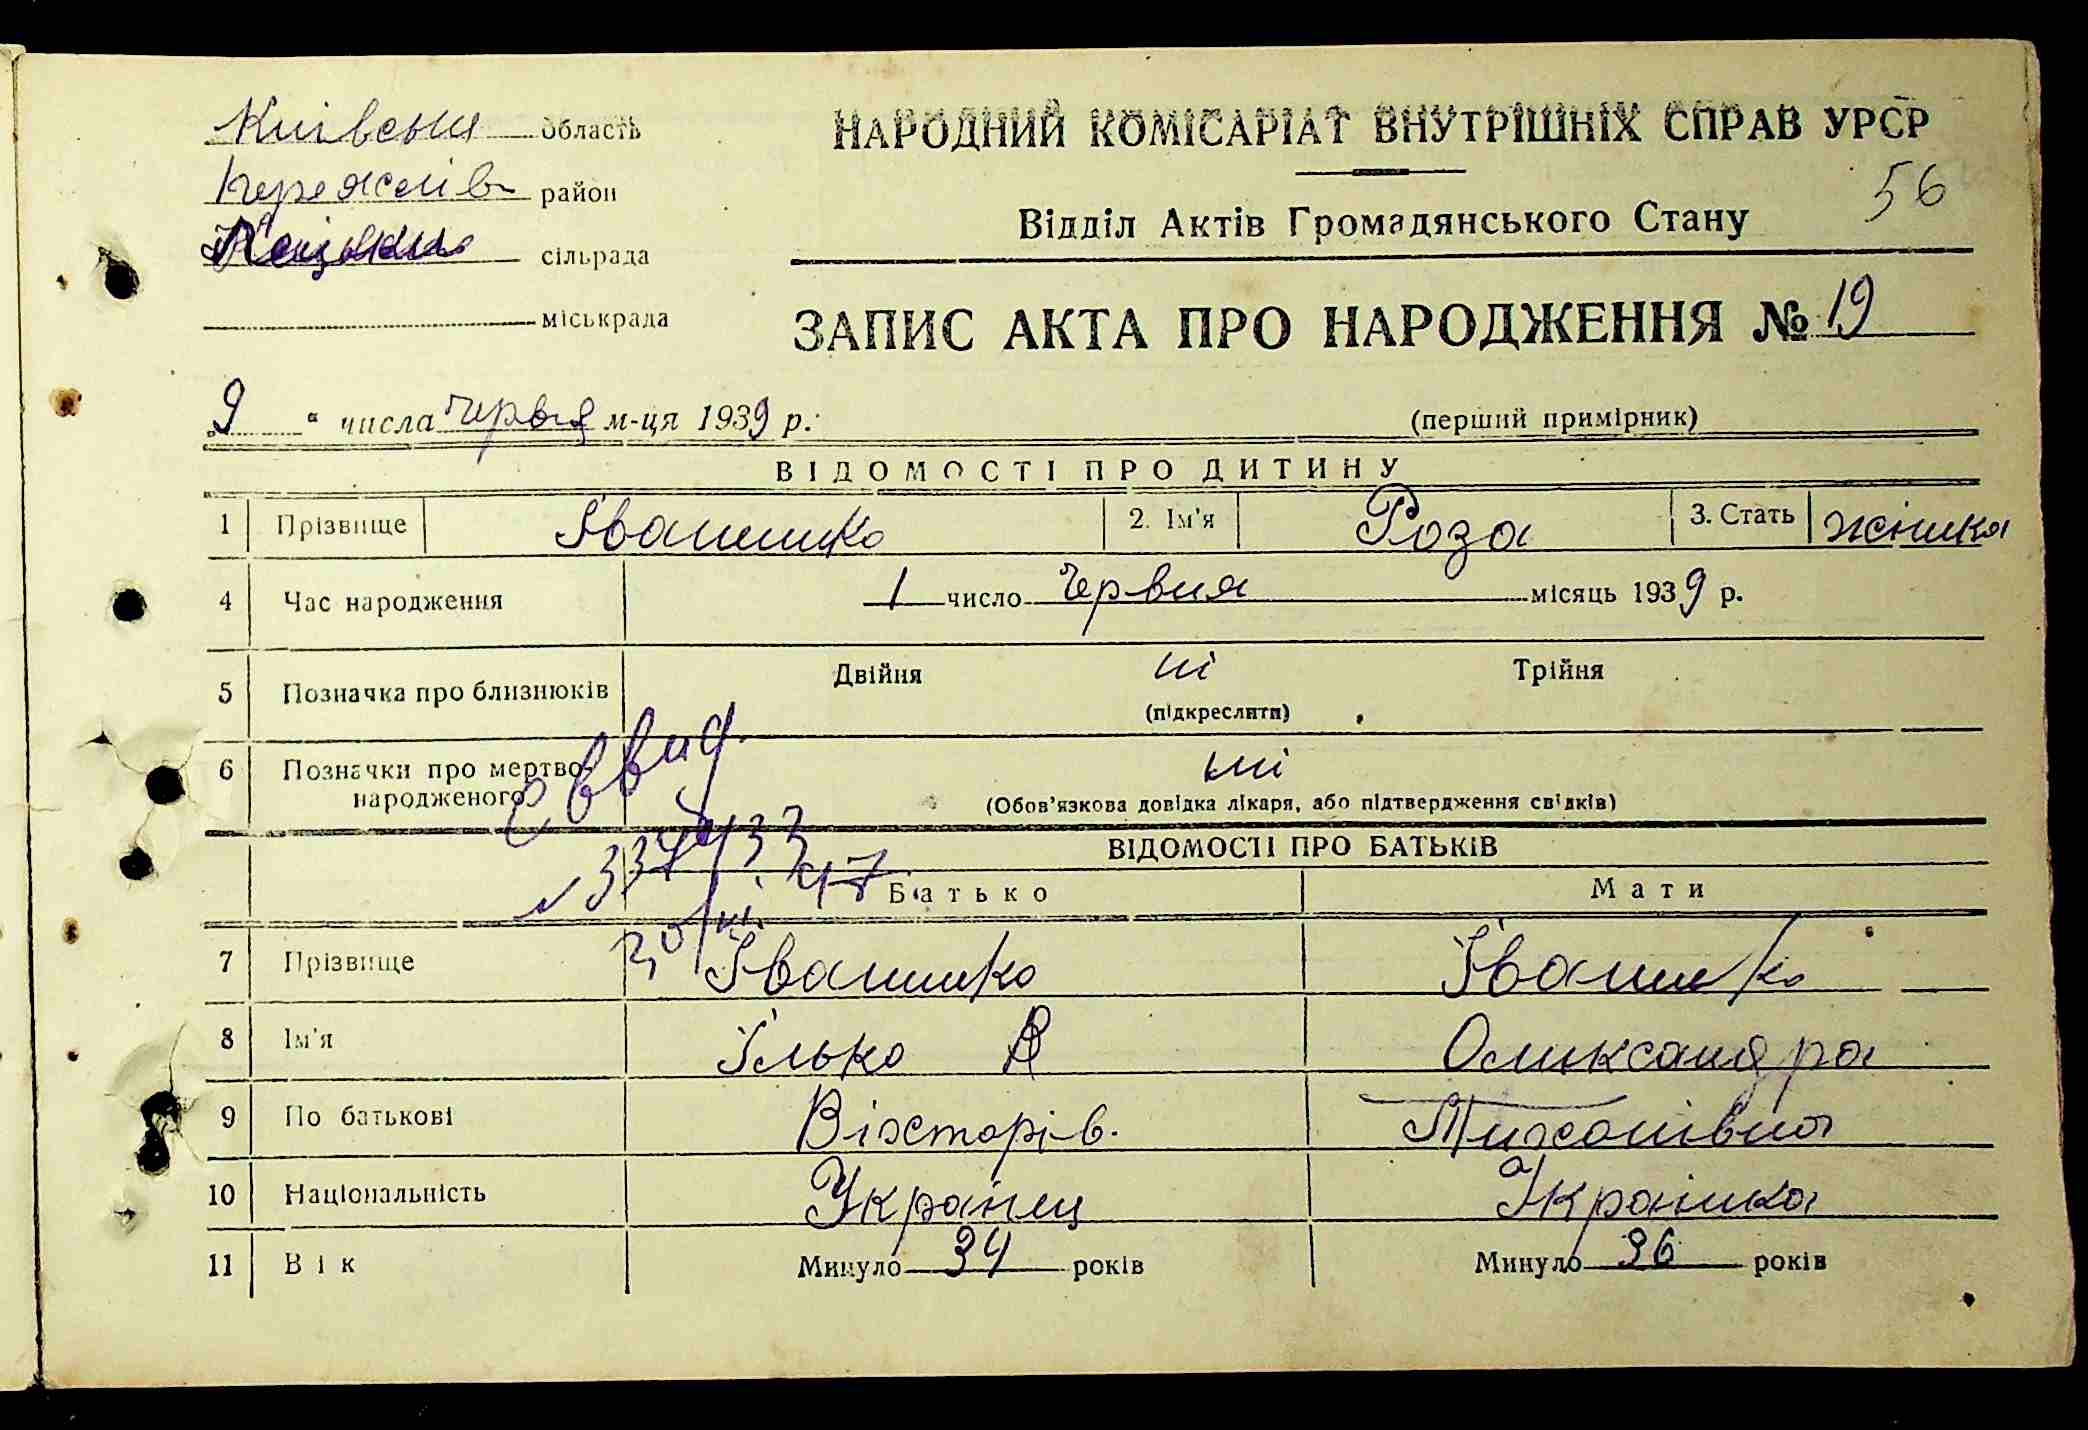 Київська область
район
сільрада
міськрада
НАРОДНИЙ КОМІСАРІАТ ВНУТРІШНІХ СПРАВ УРСР
56
Відділ Актів Громадянського Стану
ЗАПИС АКТА ПРО НАРОДЖЕННЯ № 19
"9" числа червня м-ця 1939 р.
(перший примірник)
ВІДОМОСТІ ПРО ДИТИНУ
1 Прізвище Іващенко 2. Ім'я Роза 3. Стать жінка
4 Час народження 1 число Червня місяць 1939 р.
5 Позначка про близнюків Двійня ні Трійня
(підкреслити)
6 Позначки про мертво-
народженого ні
(Обов'язкова довідка лікаря, або підтвердження свідків)
ВІДОМОСТІ ПРО БАТЬКІВ
Батько Мати
7 Прізвище
8 Ім'я Ілько Олександра
9 По батькові Вікторів.
10 Національність Українец Українка
11 Вік Минуло 34 років Минуло 36 років